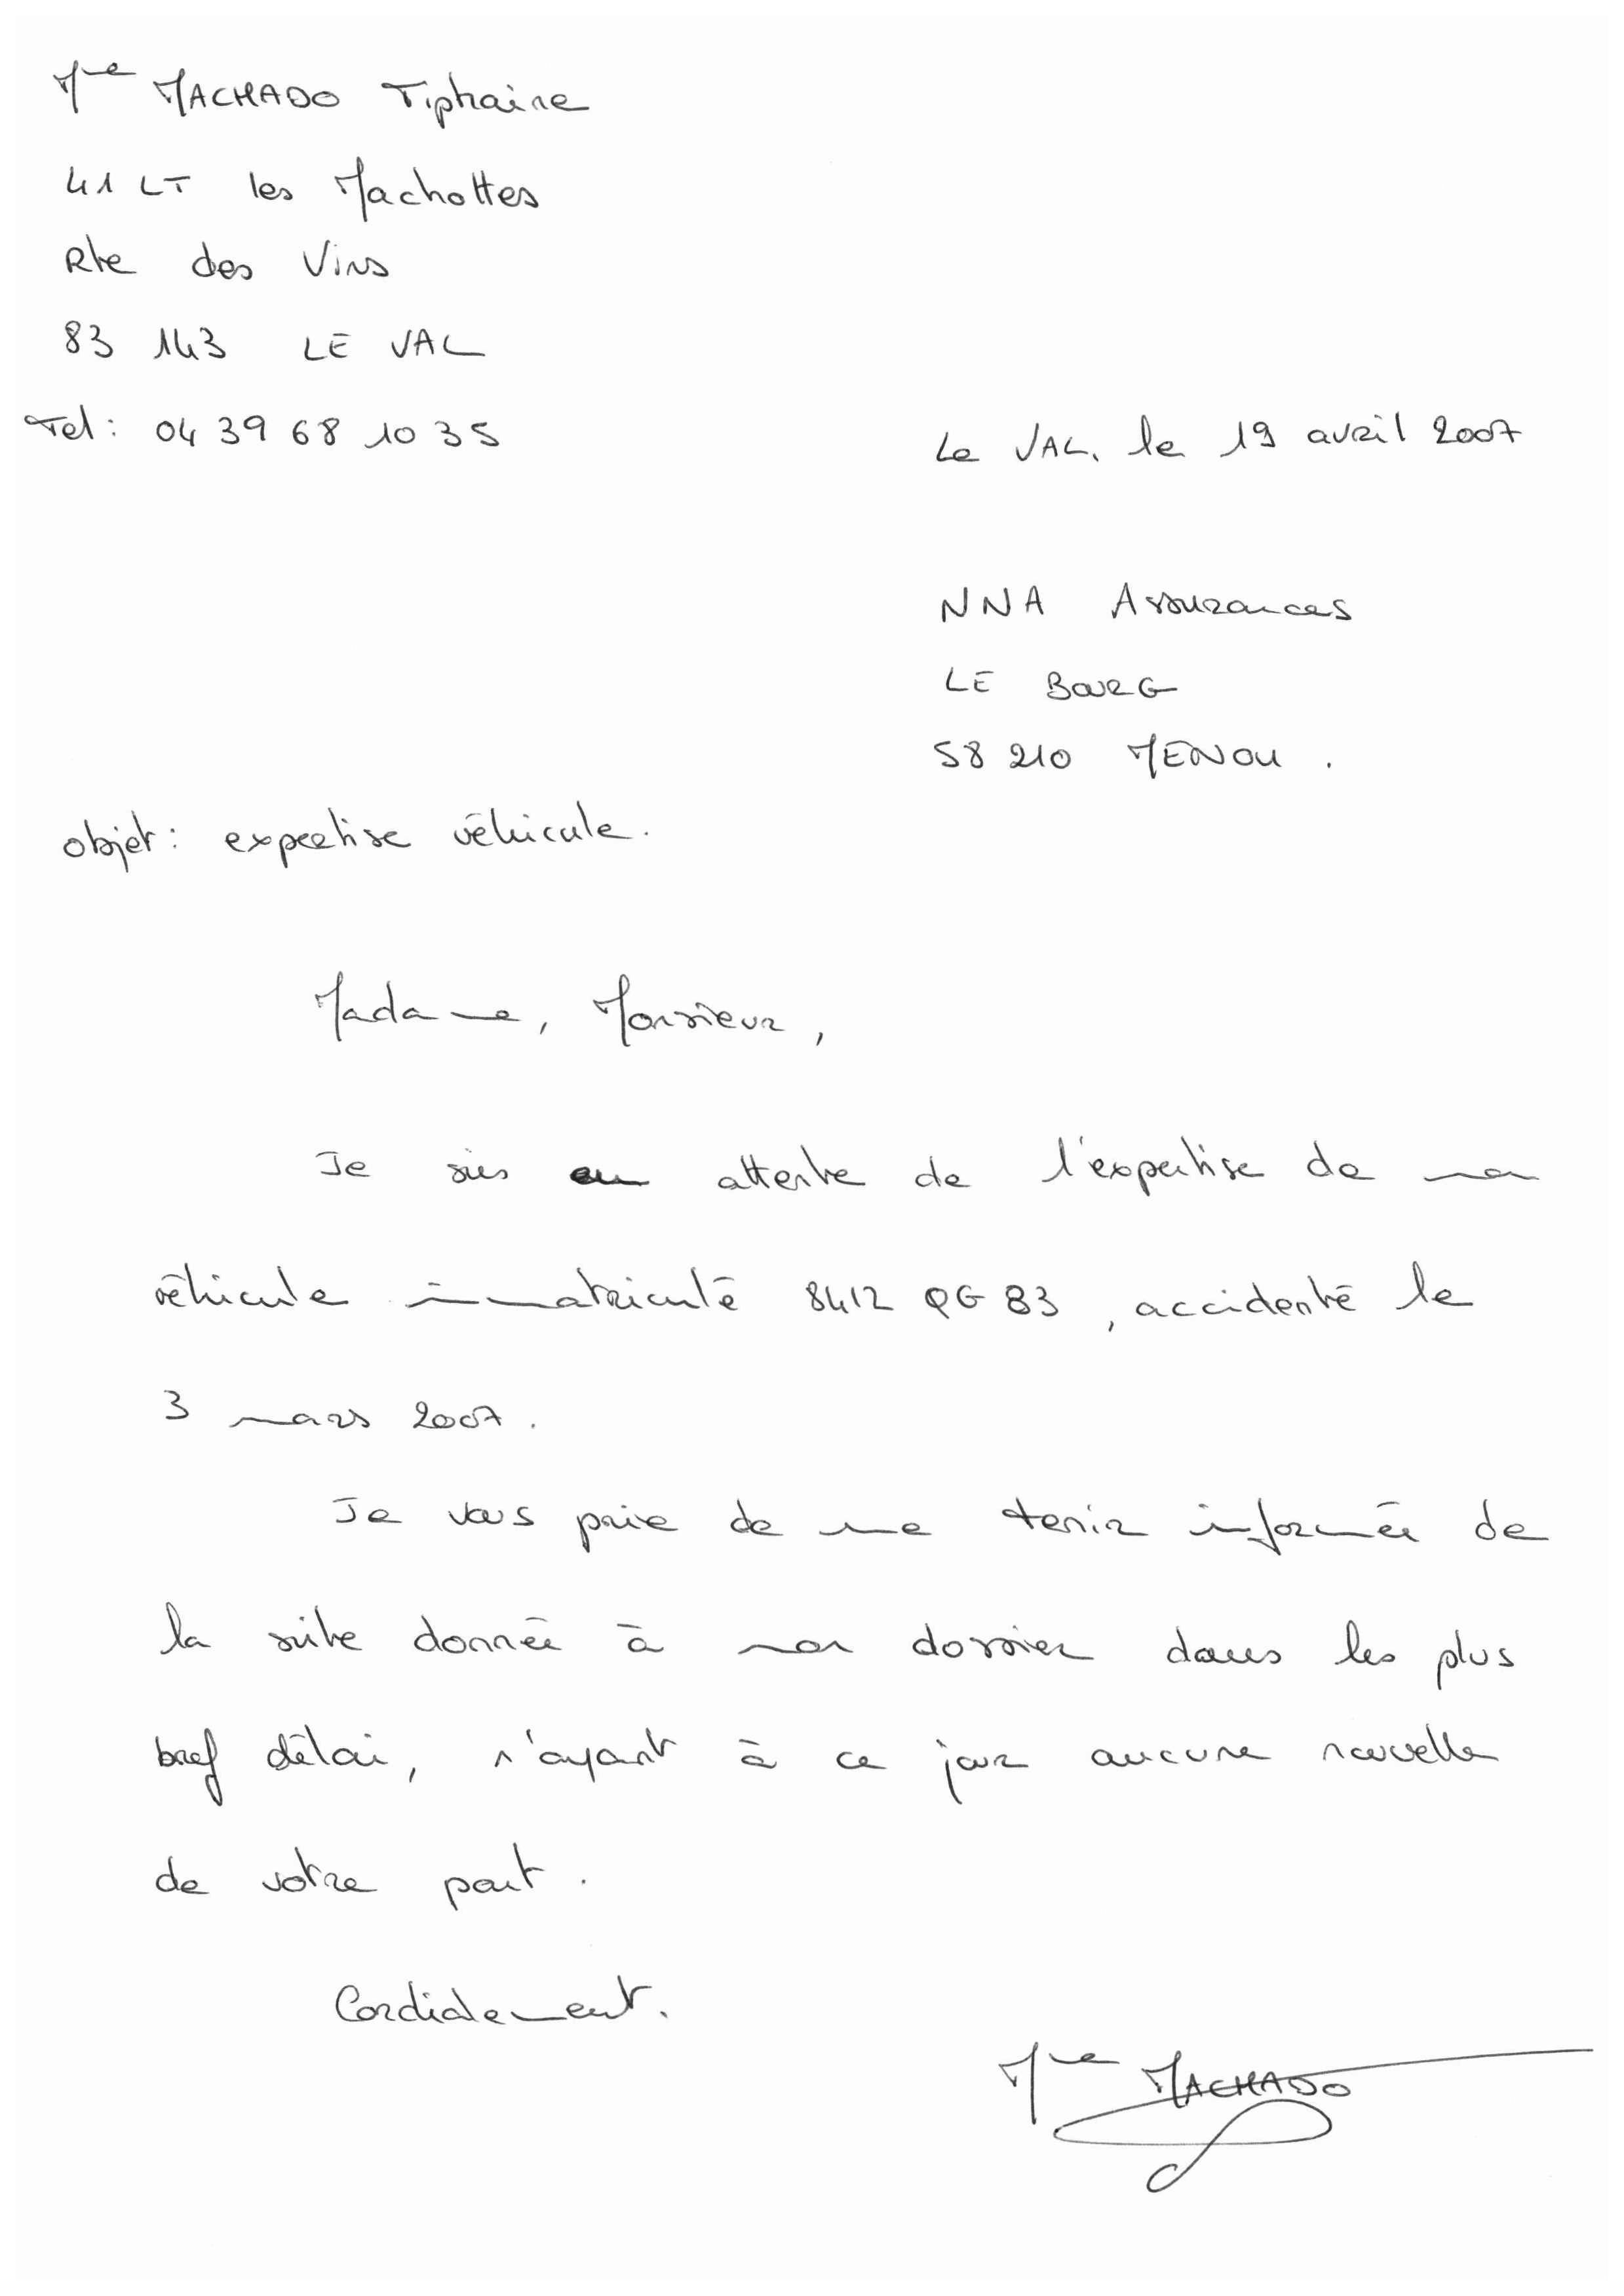 Mme MACHADO Tiphaine
41 LT les Machottes
Rte des Vins
83 143 LE VAL
Tel : 04 39 68 10 35
Le VAL, le 19 avril 2007
NNA Assurances
LE BOURG
58 210 MENOU .
objet : expertise véhicule.
Madame, Monsieur,
Je suis en attente de l'expertise de mon
véhicule immatriculé 8412 QG 83, accidenté le
3 mars 2007.
Je vous prie de me tenir informée de
la suite donnée à mon dossier dans les plus
bref délai, n'ayant à ce jour aucune nouvelle
de votre part.
Cordialement.
Mme MACHADO